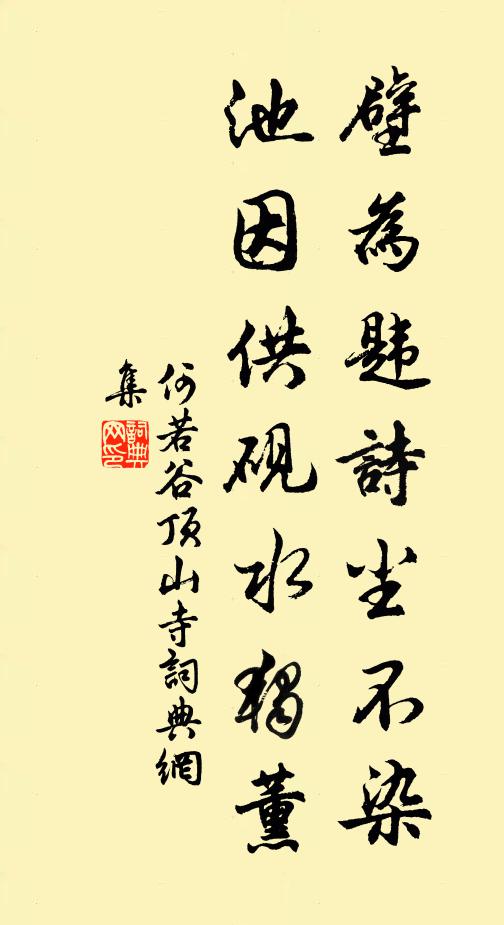 壁為題詩尘不染
池因供硯水猶薰
何若谷頂山寺詞典網
集
詞典
网印